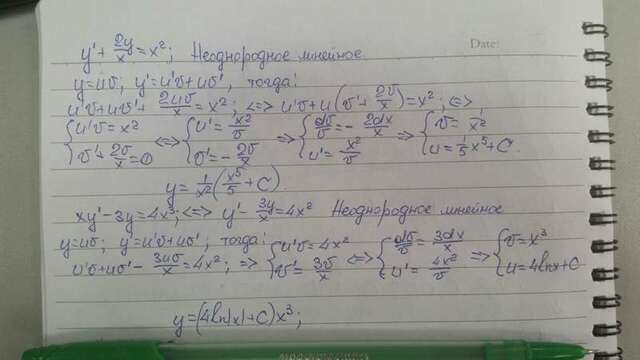 Date:
y' + 2y/x = x²; Неоднородное линейное.
y=uv; y'=u'v+uv', тогда:
u'v+uv'+ 2uv/x = x²; <=> u'v+u(v'+ 2v/x)=x²; <=>
{u'v=x² <=> {u'= x²/v => {dv/v = - 2dx/x => {v= 1/x²
{v'+ 2v/x =0 {v'=- 2v/x {u'= x²/v {u= 1/5 x⁵+C.
y= 1/x² (x⁵/5 + C).
xy'-3y=4x³; <=> y'- 3y/x =4x² Неоднородное линейное
y=uv; y'=u'v+uv'; тогда:
u'v+uv'- 3uv/x =4x²; => {u'v=4x² <=> {dv/v = 3dx/x => {v=x³
{v'= 3v/x {u'= 4x²/v {u=4lnx+C
y=(4ln|x|+C)x³;